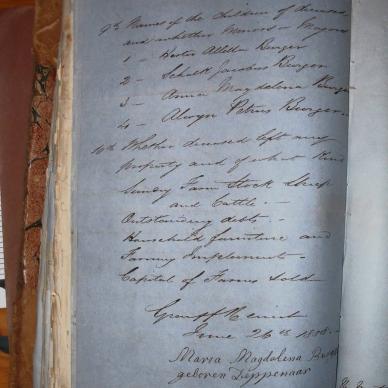 9th Names of the Children of deceased
and whether Minors or Majors
1 - Hester Aletta Burger
2 - Schalk Jacobus Burger
3 - Anna Magdalena Burger
4 - Alwyn Petrus Burger
10th Whether deceased left any
property and of what kind
Sundry Farm Stock Sheep
and Cattle -
Outstanding debts -
Household furniture and
Farming Implements -
Capital of Farms sold
Graaff Reinet
June 26th
Maria Magdalena
geboren Lippenaar